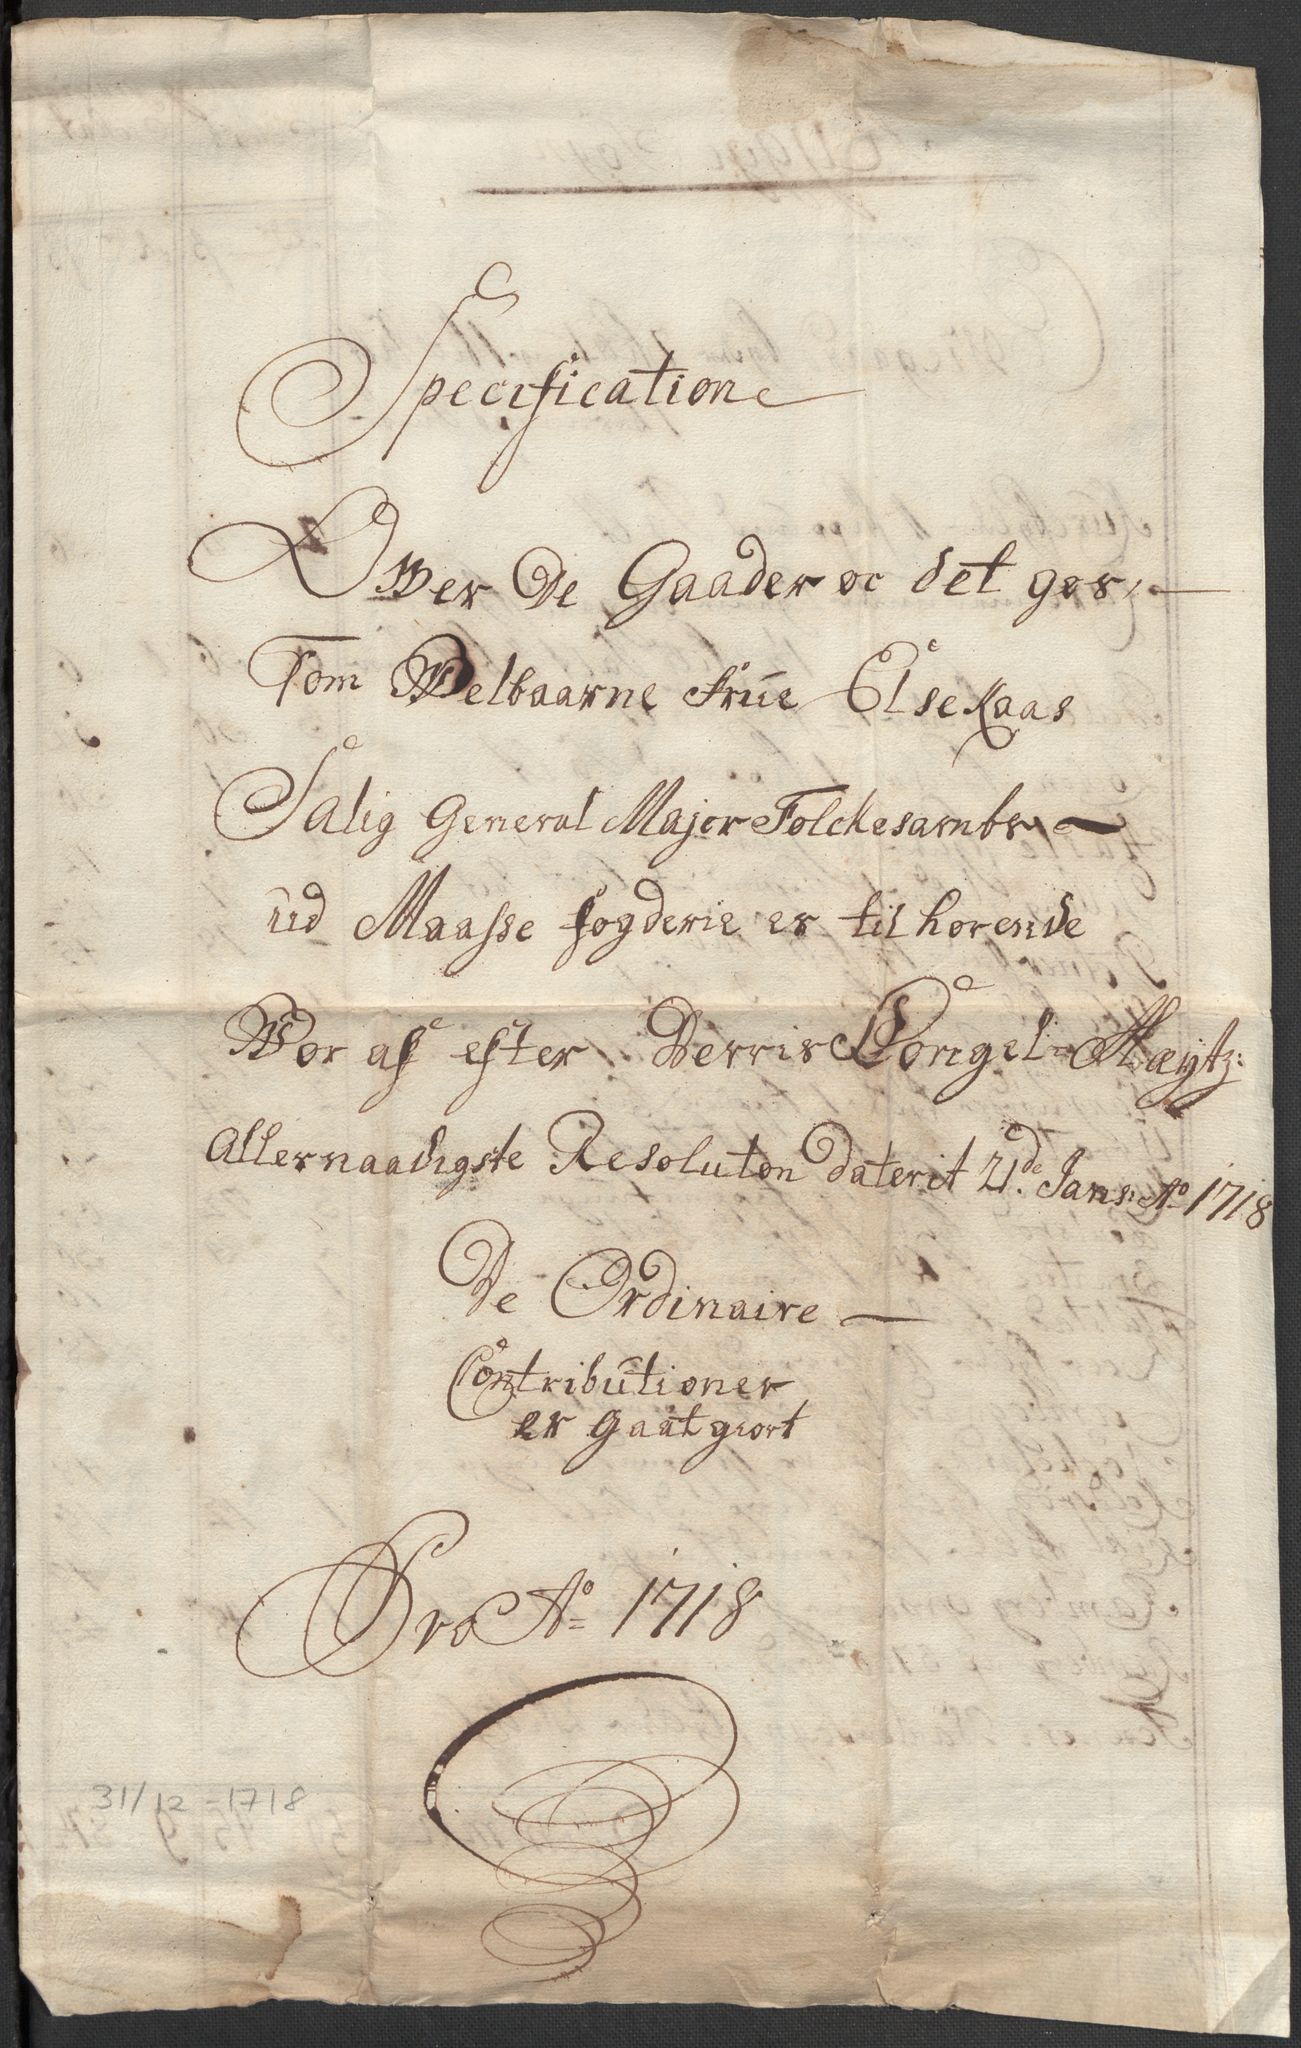 Specification
Ower De Gaader oc det gos,
Som Welbaarne Frue Else Kaas
Salig General Major Folckesambs
ud Maasse fogderie er tilhorende
Wor af efter Derris Kongel: Mayt:
Allernaadigste Resoluton daterit 21de Jan: Ao 1718
De Ordinaire
Contributioner
er gaat giort
Pro Ao 1718
31/12 - 1718